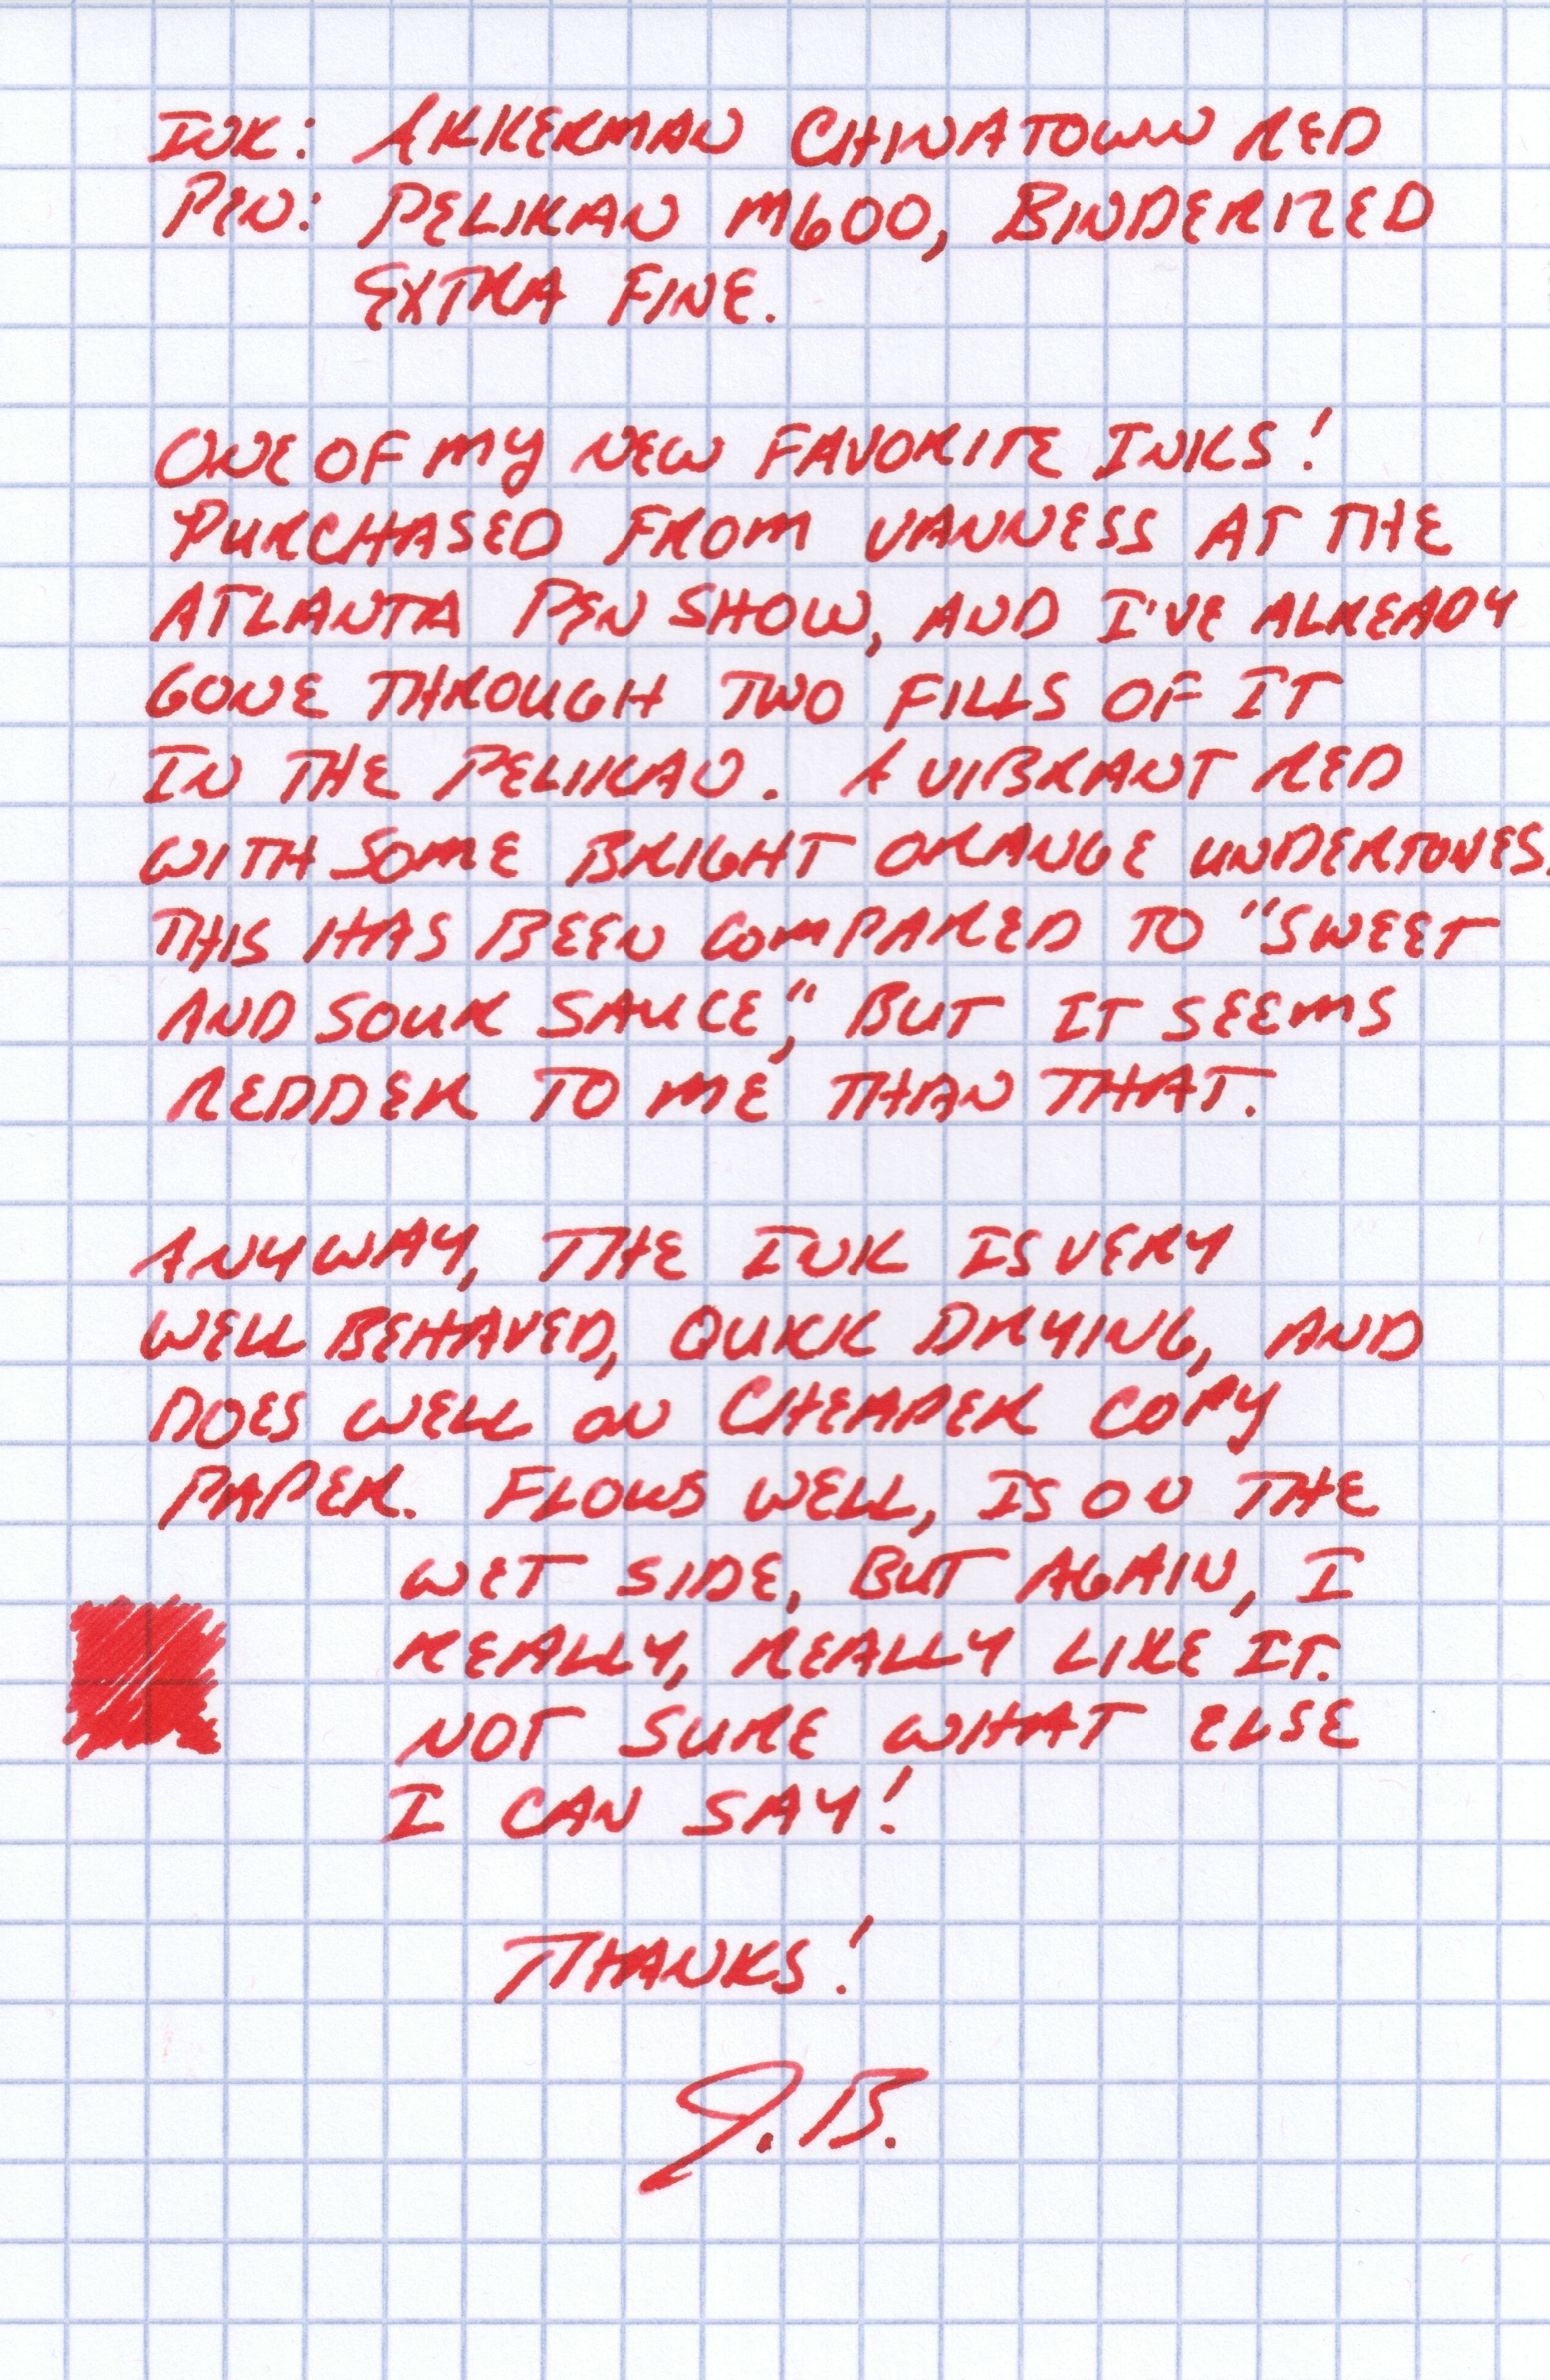 INK: AKKERMAN CHINATOWN RED
PEN: PELIKAN M600, BINDERIZED
EXTRA FINE.
ONE OF MY NEW FAVORITE INKS!
PURCHASED FROM VANNESS AT THE
ATLANTA PEN SHOW, AND I'VE ALREADY
GONE THROUGH TWO FILLS OF IT
IN THE PELIKAN. A VIBRANT RED
WITH SOME BRIGHT ORANGE UNDERTONES.
THIS HAS BEEN COMPARED TO "SWEET
AND SOUR SAUCE," BUT IT SEEMS
REDDER TO ME THAN THAT.
ANYWAY, THE INK IS VERY
WELL BEHAVED, QUICK DRYING, AND
DOES WELL ON CHEAPER COPY
PAPER. FLOWS WELL, IS ON THE
WET SIDE, BUT AGAIN, I
REALLY, REALLY LIKE IT.
NOT SURE WHAT ELSE
I CAN SAY!
THANKS!
J.B.